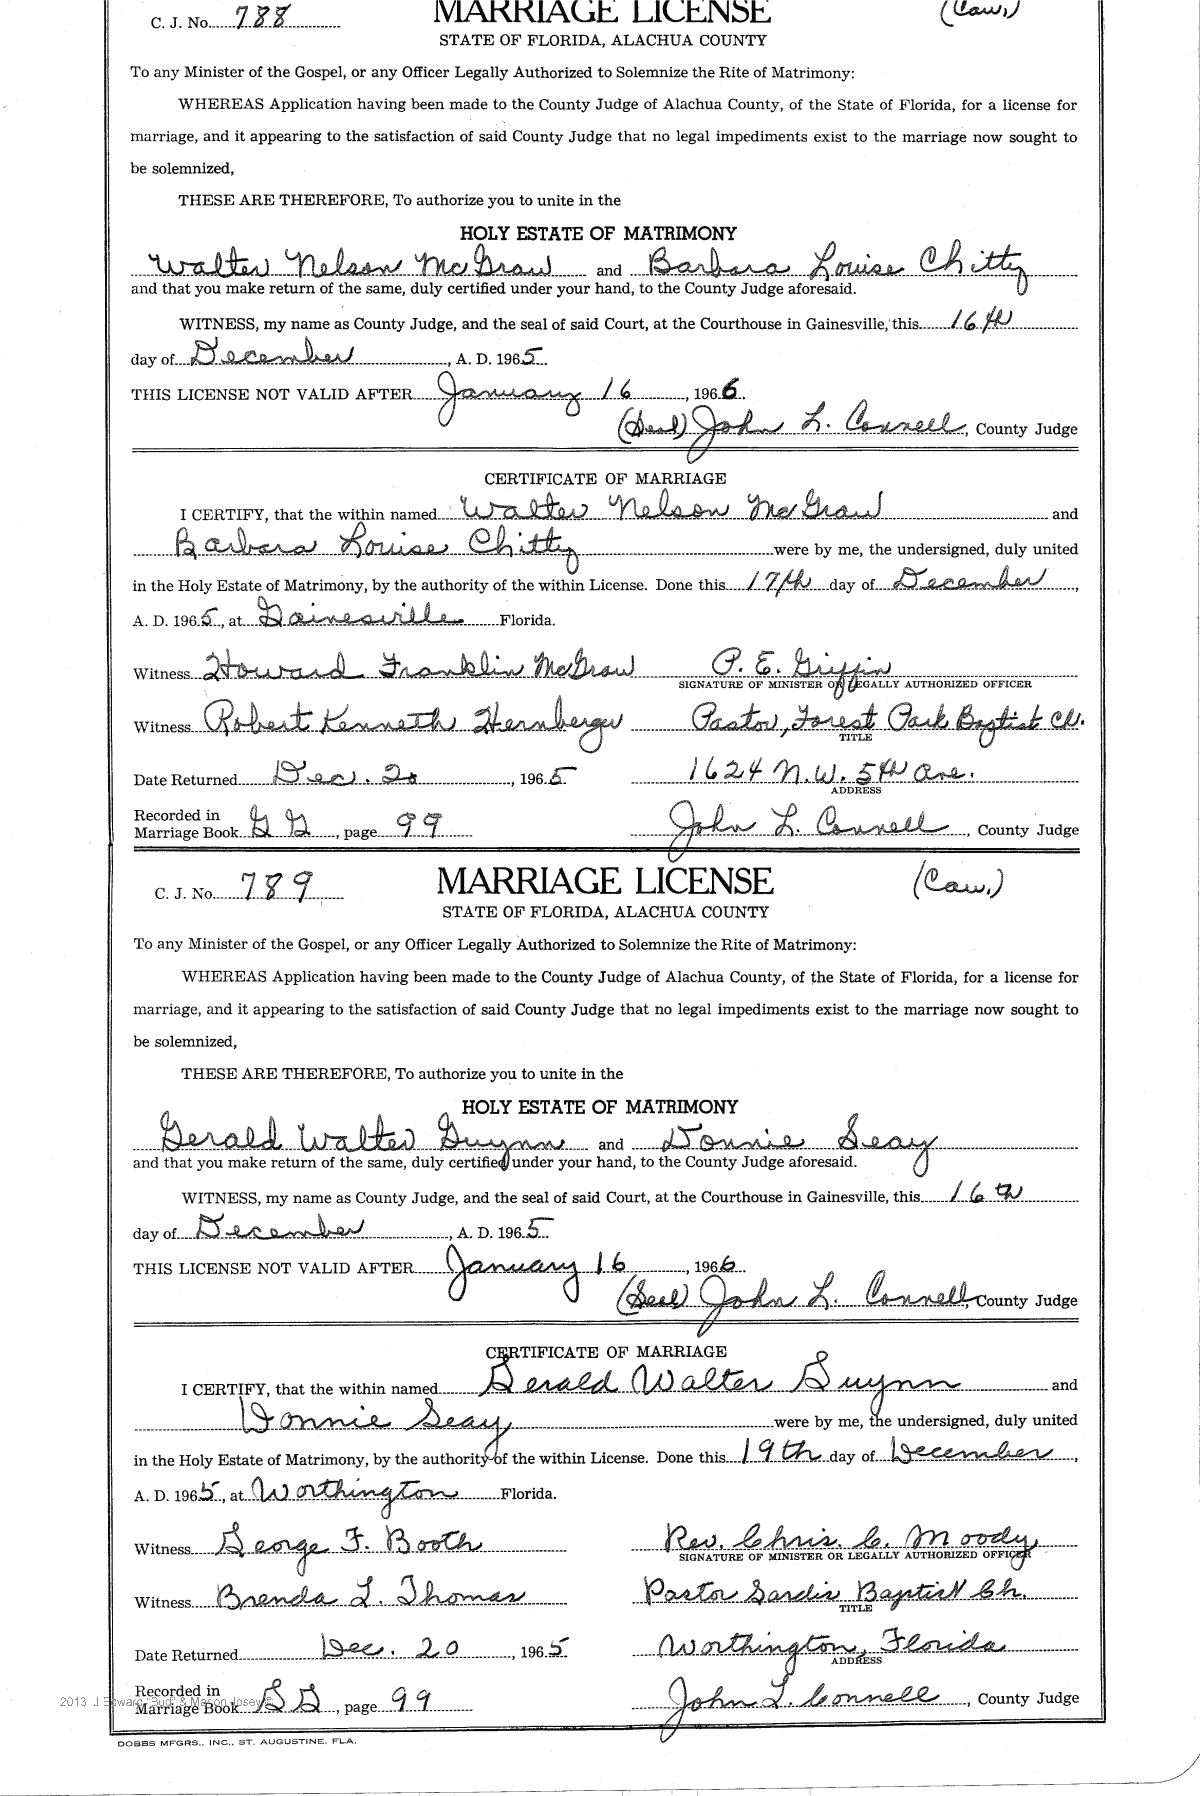 C. J. No. 788 MARRIAGE LICENSE (Caw.)
STATE OF FLORIDA, ALACHUA COUNTY
To any Minister of the Gospel, or any Officer Legally Authorized to Solemnize the Rite of Matrimony:
WHEREAS Application having been made to the County Judge of Alachua County, of the State of Florida, for a license for
marriage, and it appearing to the satisfaction of said County Judge that no legal impediments exist to the marriage now sought to
be solemnized,
THESE ARE THEREFORE, To authorize you to unite in the
HOLY ESTATE OF MATRIMONY
Walter Nelson McGraw and Barbara Louise Chitty
and that you make return of the same, duly certified under your hand, to the County Judge aforesaid.
WITNESS, my name as County Judge, and the seal of said Court, at the Courthouse in Gainesville, this 16th
day of December, A. D. 1965
THIS LICENSE NOT VALID AFTER January 16, 1966
(Seal) John L. Connell, County Judge
CERTIFICATE OF MARRIAGE
I CERTIFY, that the within named Walter Nelson McGraw and
Barbara Louise Chitty were by me, the undersigned, duly united
in the Holy Estate of Matrimony, by the authority of the within License. Done this 17th day of December,
A. D. 1965, at Gainesville Florida.
Witness Howard Franklin McGraw P. E. Griffin
SIGNATURE OF MINISTER OR LEGALLY AUTHORIZED OFFICER
Witness Robert Kenneth Hernberger Pastor, Forest Park Baptist Ch.
TITLE
Date Returned Dec. 20, 1965 1624 N.W. 5th Ave.
ADDRESS
Recorded in
Marriage Book GG, page 99 John L. Connell, County Judge
C. J. No. 789 MARRIAGE LICENSE (Caw.)
STATE OF FLORIDA, ALACHUA COUNTY
To any Minister of the Gospel, or any Officer Legally Authorized to Solemnize the Rite of Matrimony:
WHEREAS Application having been made to the County Judge of Alachua County, of the State of Florida, for a license for
marriage, and it appearing to the satisfaction of said County Judge that no legal impediments exist to the marriage now sought to
be solemnized,
THESE ARE THEREFORE, To authorize you to unite in the
HOLY ESTATE OF MATRIMONY
Gerald Walter Guynn and Donnie Seay
and that you make return of the same, duly certified under your hand, to the County Judge aforesaid.
WITNESS, my name as County Judge, and the seal of said Court, at the Courthouse in Gainesville, this 16th
day of December, A. D. 1965
THIS LICENSE NOT VALID AFTER January 16, 1966
(Seal) John L. Connell, County Judge
CERTIFICATE OF MARRIAGE
I CERTIFY, that the within named Gerald Walter Guynn and
Donnie Seay were by me, the undersigned, duly united
in the Holy Estate of Matrimony, by the authority of the within License. Done this 19th day of December,
A. D. 1965, at Worthington Florida.
Witness George F. Booth Rev. Chris. C. Moody
SIGNATURE OF MINISTER OR LEGALLY AUTHORIZED OFFICER
Witness Brenda L. Thomas Pastor Sardis Baptist Ch.
TITLE
Date Returned Dec. 20, 1965 Worthington, Florida
ADDRESS
Recorded in
Marriage Book GG, page 99 John L. Connell, County Judge
2013 J Edward "Bud" & Mason Josey ©
DOBBS MFGRS., INC., ST. AUGUSTINE, FLA.